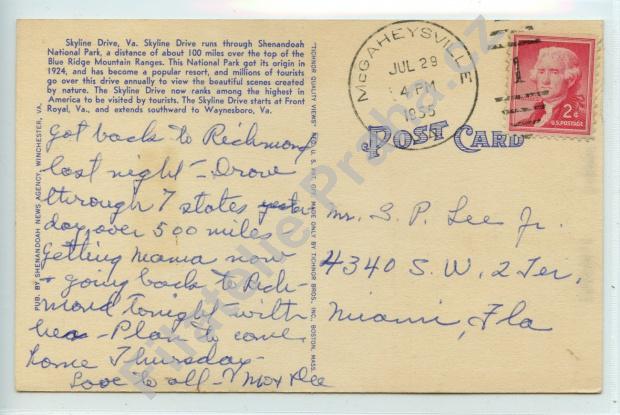 Skyline Drive, Va. Skyline Drive runs through Shenandoah
National Park, a distance of about 100 miles over the top of the
Blue Ridge Mountain Ranges. This National Park got its origin in
1924, and has become a popular resort, and millions of tourists
go over this drive annually to view the beautiful scenes created
by nature. The Skyline Drive now ranks among the highest in
America to be visited by tourists. The Skyline Drive starts at Front
Royal, Va., and extends southward to Waynesboro, Va.
Got back to Richmond
last night - Drove
through 7 states yester
day over 500 miles
Getting mama now
- going back to Rich-
mond tonight - with
her - Plan to come
home Thursday -
Love to all -
PUB. BY SHENANDOAH NEWS AGENCY, WINCHESTER, VA.
"TICHNOR QUALITY VIEWS," REG. U. S. PAT. OFF. MADE ONLY BY TICHNOR BROS., INC., BOSTON, MASS.
McGAHEYSVILLE
JUL 29
4 PM
1955
2¢
U.S. POSTAGE
POST CARD
Mr. S. P. Lee Jr.
4340 S.W. 2 Ter.
Miami, Fla
Filatelie-Praha.cz